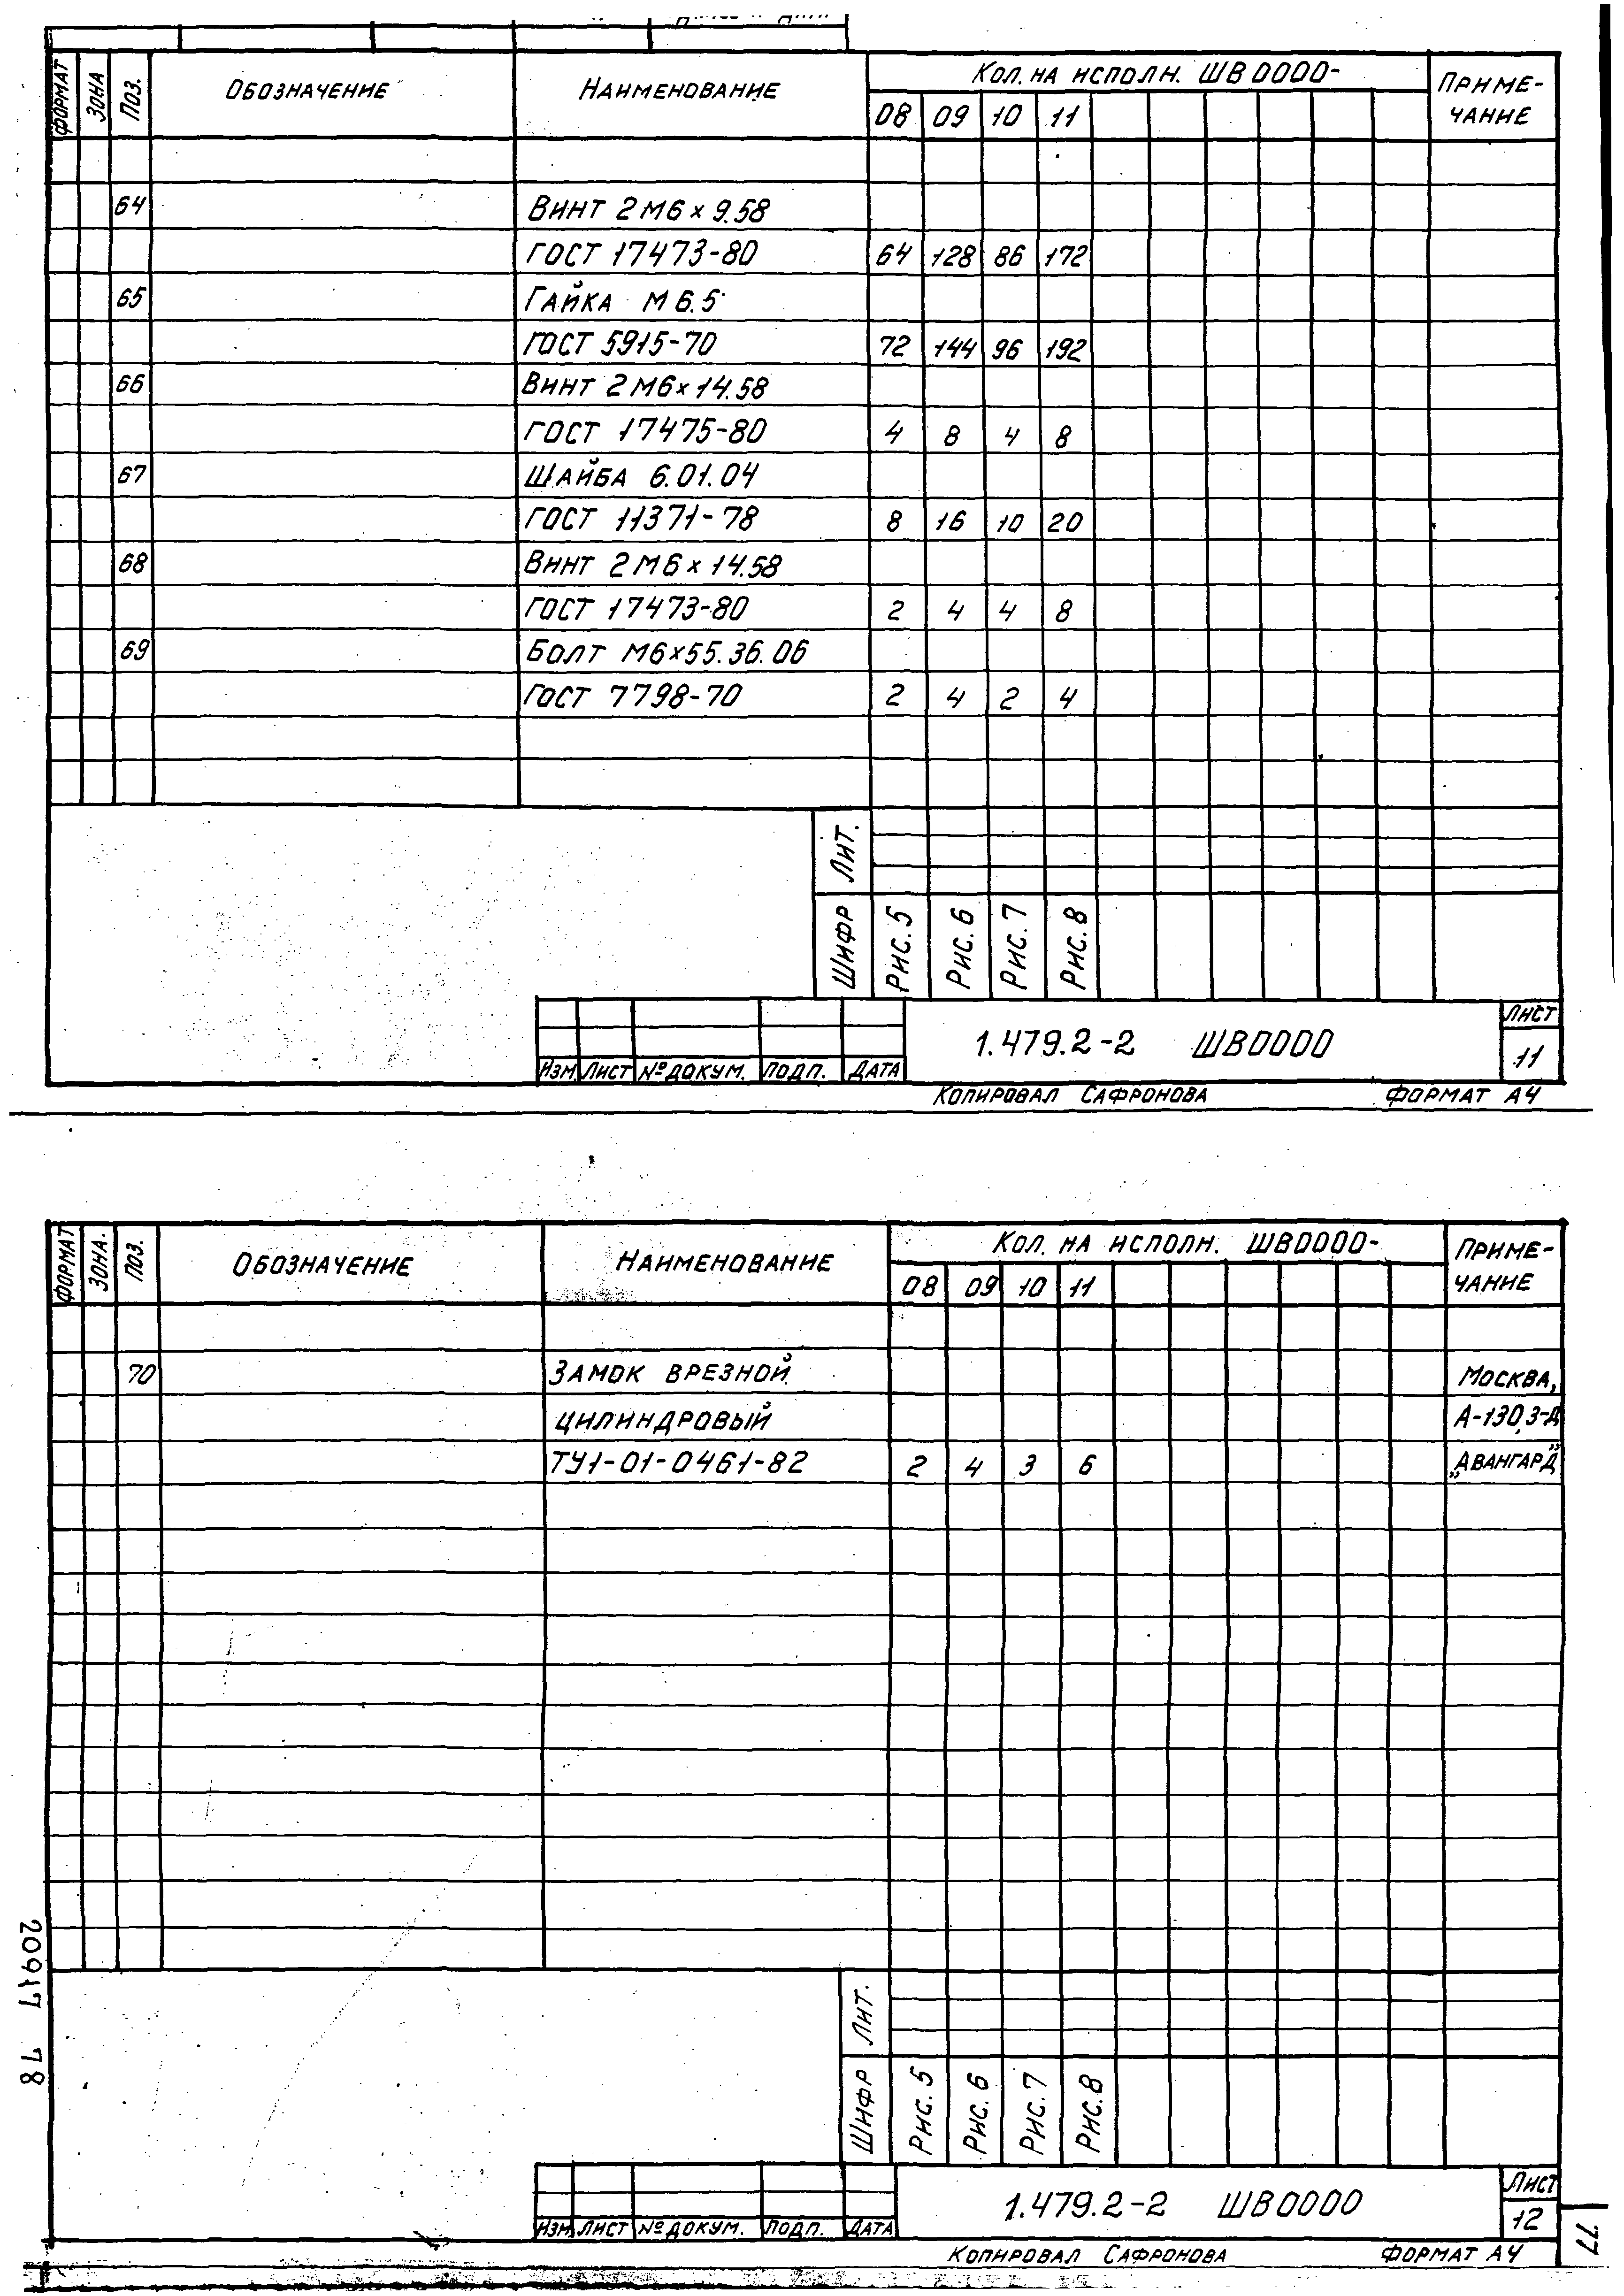 ФОРМАТ ЗОНА ПОЗ. ОБОЗНАЧЕНИЕ НАИМЕНОВАНИЕ КОЛ. НА ИСПОЛН. ШВ0000- ПРИМЕ-
08 09 10 11 ЧАНИЕ
64 ВИНТ 2М6×9.58
ГОСТ 17473-80 64 128 86 172
65 ГАЙКА М6.5
ГОСТ 5915-70 72 144 96 192
66 ВИНТ 2М6×14.58
ГОСТ 17475-80 4 8 4 8
67 ШАЙБА 6.01.04
ГОСТ 11371-78 8 16 10 20
68 ВИНТ 2М6×14.58
ГОСТ 17473-80 2 4 4 8
69 БОЛТ М6×55.36.06
ГОСТ 7798-70 2 4 2 4
ЛИТ.
ШИФР РИС. 5 РИС. 6 РИС. 7 РИС. 8
1.479.2-2 ШВ0000 ЛИСТ
11
ИЗМ. ЛИСТ № ДОКУМ. ПОДП. ДАТА
КОПИРОВАЛ САФРОНОВА ФОРМАТ А4
ФОРМАТ ЗОНА. ПОЗ. ОБОЗНАЧЕНИЕ НАИМЕНОВАНИЕ КОЛ. НА ИСПОЛН. ШВ0000- ПРИМЕ-
08 09 10 11 ЧАНИЕ
70 ЗАМОК ВРЕЗНОЙ МОСКВА,
ЦИЛИНДРОВЫЙ А-130, З-Д
ТУ1-01-0461-82 2 4 3 6 „АВАНГАРД"
ЛИТ.
ШИФР РИС. 5 РИС. 6 РИС. 7 РИС. 8
1.479.2-2 ШВ0000 ЛИСТ
12
ИЗМ. ЛИСТ № ДОКУМ. ПОДП. ДАТА
КОПИРОВАЛ САФРОНОВА ФОРМАТ А4
20917 78
77